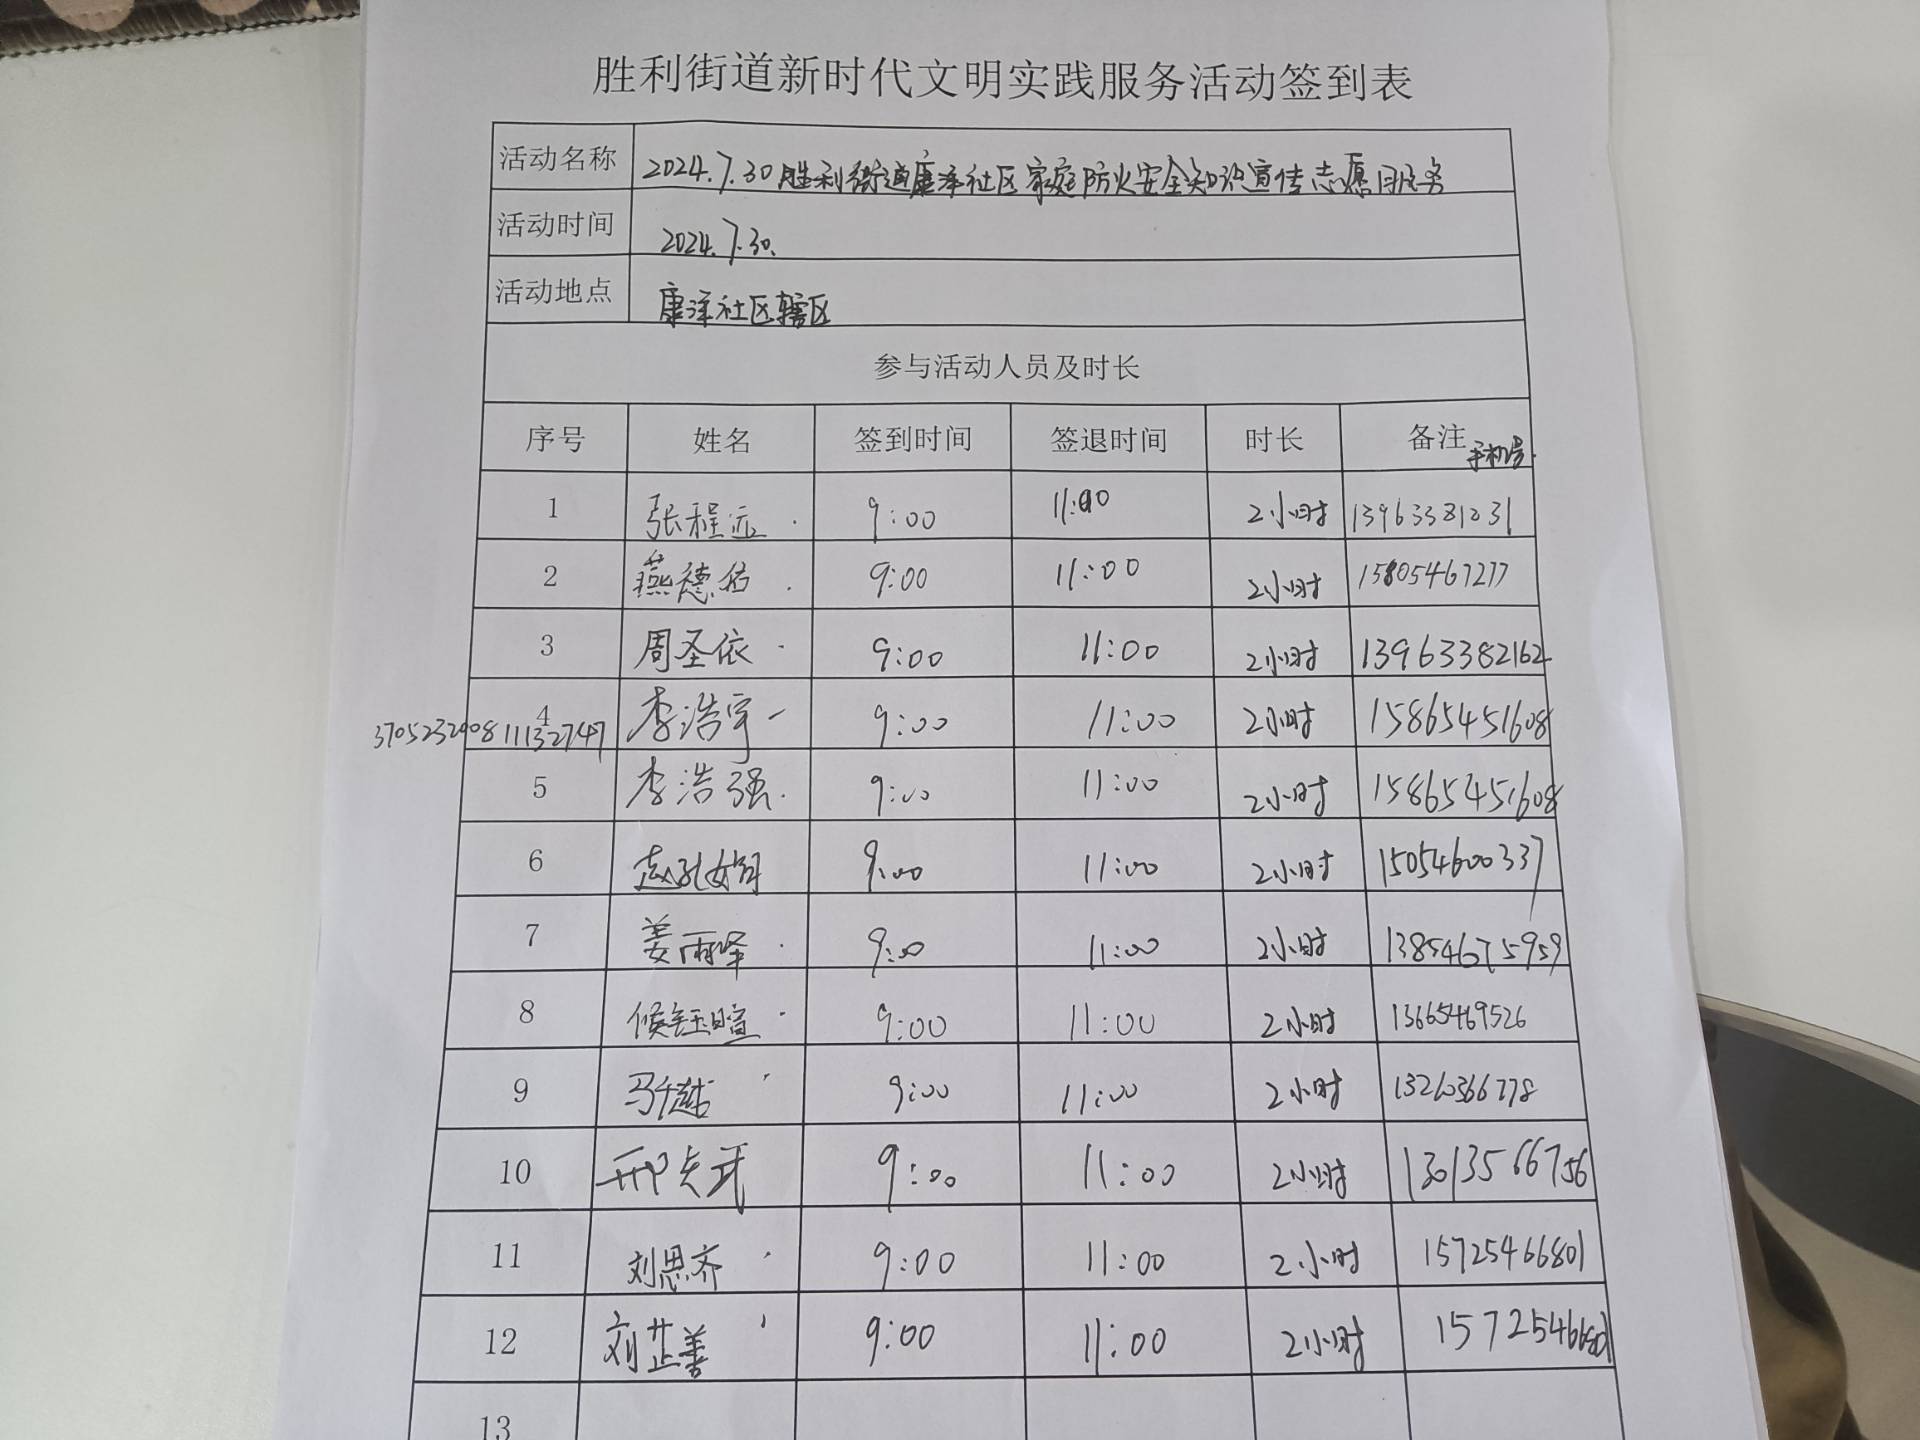 胜利街道新时代文明实践服务活动签到表
活动名称 2024.7.30胜利街道康泽社区家庭防火安全知识宣传志愿服务
活动时间 2024.7.30.
活动地点 康泽社区辖区
参与活动人员及时长
序号 姓名 签到时间 签退时间 时长 备注 手机号
1 张程远 9:00 11:00 2小时 13963381031
2 燕德佑 9:00 11:00 2小时 15805467277
3 周圣依 9:00 11:00 2小时 13963382162
4 李浩宇 9:00 11:00 2小时 15865451608
370523200811132747
5 李浩强 9:00 11:00 2小时 15865451608
6 赵 9:00 11:00 2小时 15054600337
7 姜雨泽 9:00 11:00 2小时 13854675959
8 侯钰暄 9:00 11:00 2小时 13665469526
9 马千越 9:00 11:00 2小时
10 邢 9:00 11:00 2小时 13013566756
11 刘思齐 9:00 11:00 2小时 15725466801
12 刘芷善 9:00 11:00 2小时 15725466801
13